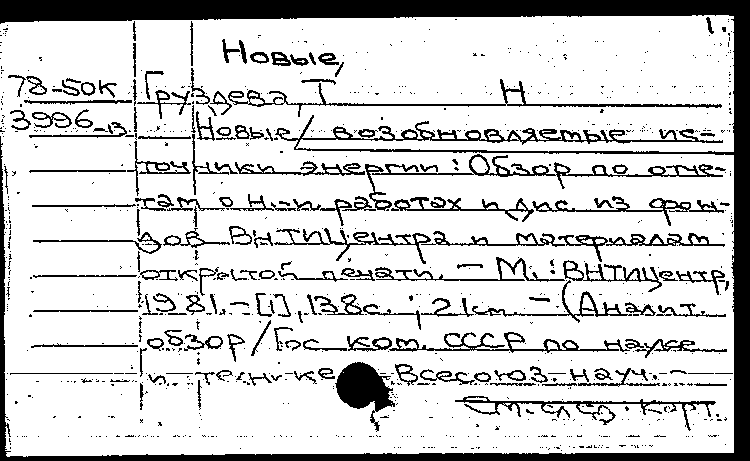 1.
Новые,
78-50К Груздева, Т Н
3996-13 Новые/ возобновляемые ис-
точники энергии: Обзор по отче-
там о Н.-и. работах и дис. из фон-
дов ВНТИЦентра и материалам
открытой печати. — М.: ВНТИЦентр,
1981. - [1], 138с.; 21см. — (Аналит.
обзор/Гос ком. СССР по науке
и технике Всесоюз. науч. -
См. след. карт.